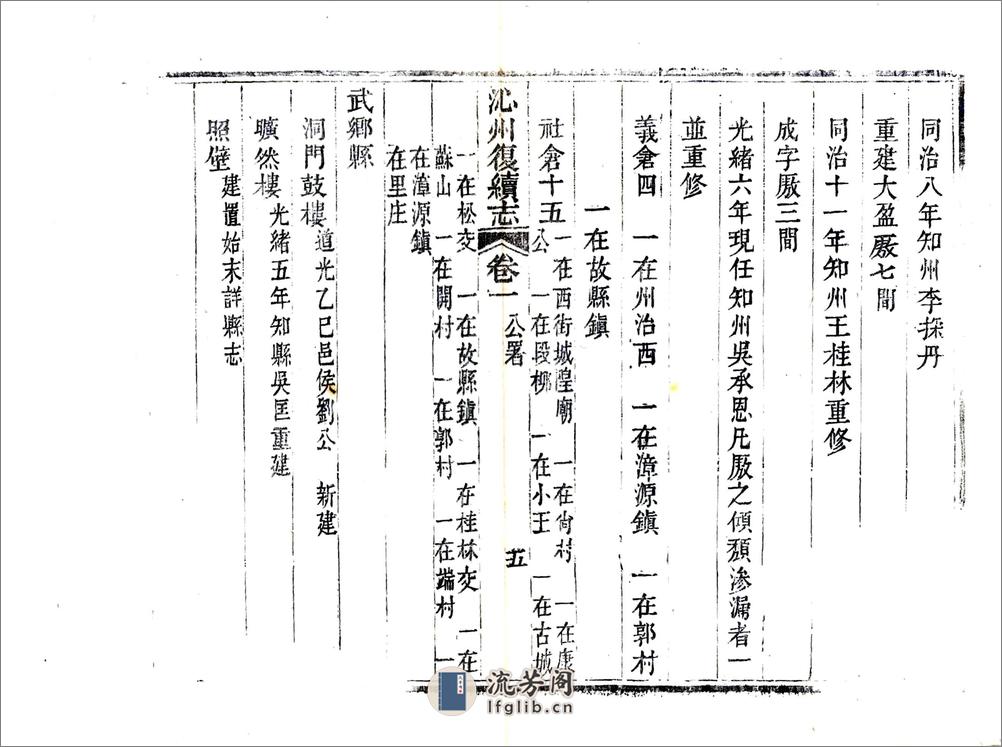 同治八年知州李採丹
重建大盈厫七間
同治十一年知州王桂林重修
成字厫三間
光緒六年現任知州吳承恩凡厫之傾頽滲漏者一
並重修
義倉四 一在州治西 一在漳源鎭 一在郭村
一在故縣鎭
社倉十五 一在西街城隍廟 一在尙村 一在康
公 一在段柳 一在小王 一在古城
沁州復續志 卷一 公署 五
一在松交 一在故縣鎭 一在桂林交 一在
蘇山 一在開村 一在郭村 一在端村 一
在漳源鎭
在里庄
武鄉縣
洞門鼓樓 道光乙巳邑侯劉公 新建
曠然樓 光緒五年知縣吳匡重建
照壁 建置始末詳縣志
流芳阁
lfglib.cn